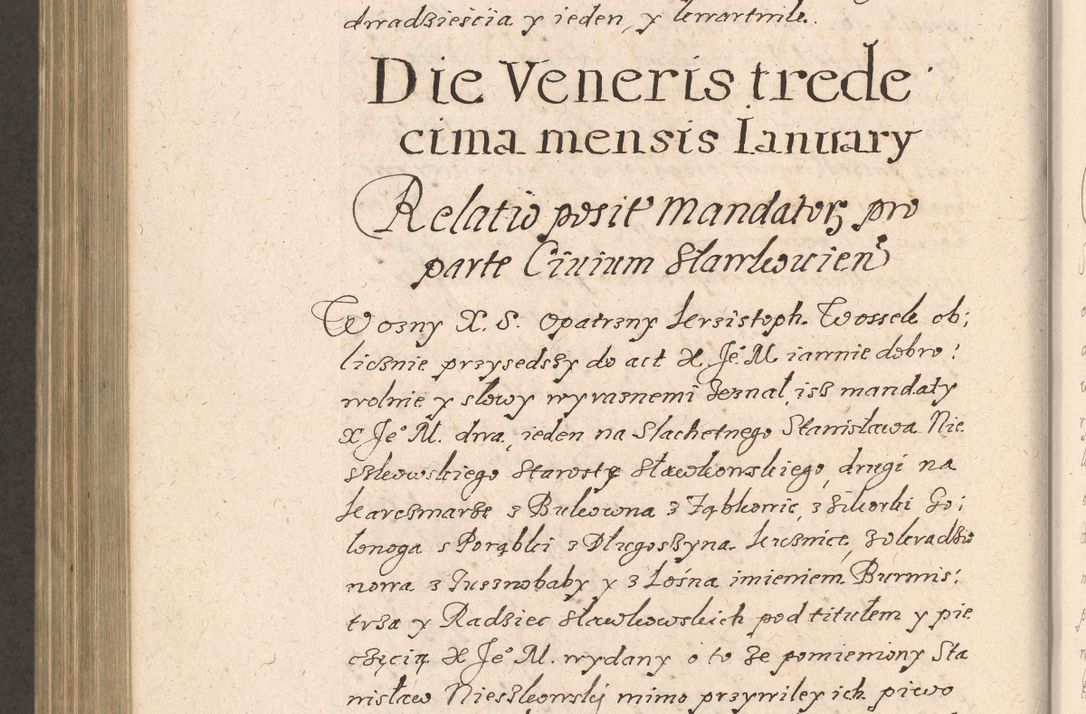 dwadzieścia y ieden, y kwartnik.
Die Veneris trede
cima mensis Ianuary
Relatio posit mandator pro
parte Ciuium Sławkouien
Wozny X. S. opatrzny krzistoph Wossek ob;
licznie przysedszy do act X Je° M iawnie dobro:
wolnie y słowy wyraznemi zeznał, isz mandaty
X Je° M. dwa, ieden na Slachetnego Stanisława Nie
szkowskiego Starostę Sławkowskiego, drugi na
karczmarze z Bukowna z Ząbkowic, z Sikorki Go;
lonoga s Porąbki z Długoszyna kuźnice, z okradzio
nowa z Tusznobaby y z Łośna imieniem Burmis:
trza y Radziec Sławkowskich pod titułem y pie
częcią X Je° M. wydany o to ze pomieniony Sta
nisław Nieszkowskj mimo przywiley ich piwo